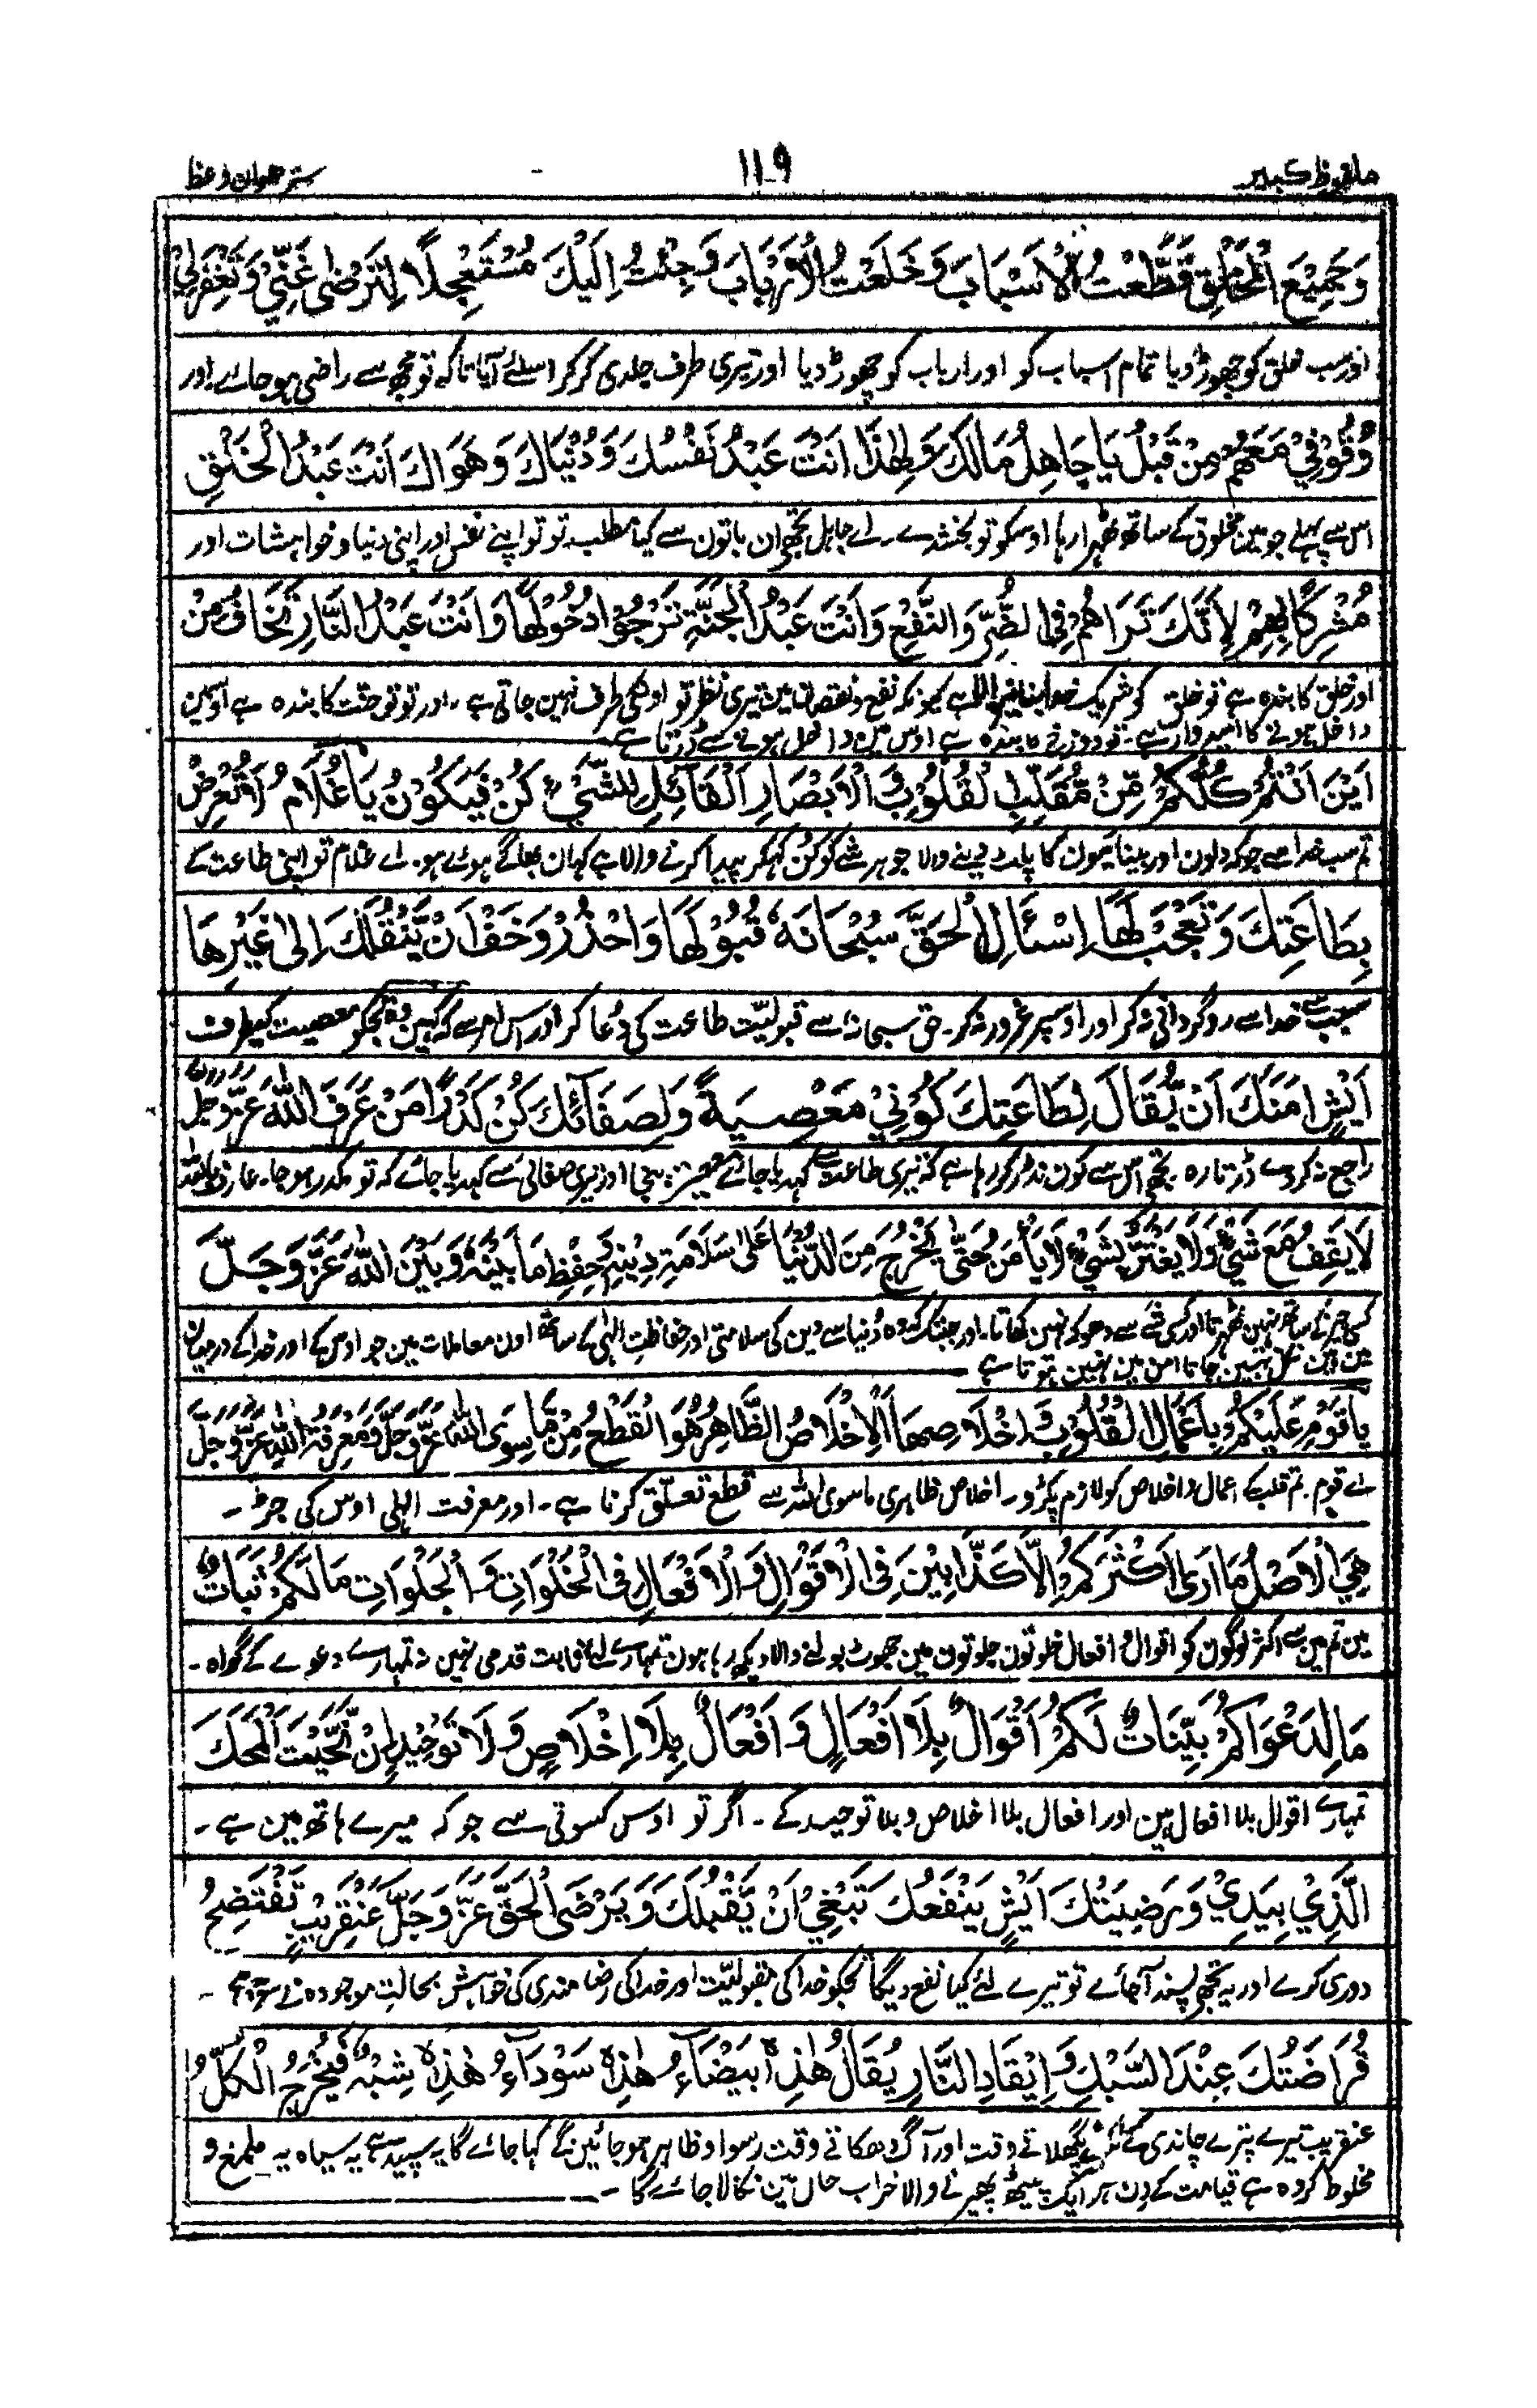 ملفوظ کبیر ۱۱۹ سترھواں وعظ
وَجَمِيْعَ الْخَلْقِ قَطَّعْتُ الْاَسْبَابَ وَخَلَعْتُ الْاَرْبَابَ وَجِئْتُ اِلَيْكَ مُسْتَعْجِلًا لِتَرْضٰى عَنِّيْ وَتَغْفِرَ لِيْ
اور سب خلق کو چھوڑ دیا تمام اسباب کو اور ارباب کو چھوڑ دیا اور تیری طرف جلدی کر کر اسلئے آیا تاکہ تو مجھ سے راضی ہو جائے اور
وُقُوْفِيْ مَعَهُمْ مِنْ قَبْلُ يَا جَاهِلُ مَالَكَ وَلِهٰذَا اَنْتَ عَبْدُ نَفْسُكَ وَدُنْيَاكَ وَهَوَاكَ اَنْتَ عَبْدُ الْخَلْقِ
اس سے پہلے جو مین مخلوق کے ساتھ ٹھہرا رہا اوسکو تو بخشدے۔ اے جاہل تجھے ان باتون سے کیا مطلب۔ تو تو اپنے نفس اور اپنی دنیا و خواہشات اور
مُشْرِكًا بِهِمْ لِاَنَّكَ تَرَاهُمْ فِي الضُّرِّ وَالنَّفْعِ وَاَنْتَ عَبْدُ الْجَنَّةِ تَرْجُوْا دُخُوْلَهَا وَاَنْتَ عَبْدُ النَّارِ تَخَافُ مِنْ
اور خلق کا بندہ ہے تو خلق کو شریک خدا کیونکہ نفع و نقصان مین تیری نظر تو اونکی طرف نہین جاتی ہے، اور تو تو جنت کا بندہ ہے اوسمین
داخل ہونے کا امیدوار ہے۔ تو دوزخ کا بندہ ہے اوس مین داخل ہونے سے ڈرتا ہے
اَيْنَ اَنْتُمْ كُلُّكُمْ مِّنْ مُّقَلِّبِ الْقُلُوْبِ وَالْاَبْصَارِ اَلْقَآئِلِ لِلشَّيْءِ كُنْ فَيَكُوْنُ يَا غُلَامُ لَا تُعْرِضْ
تم سب خدا سے جو کہ دلون اور بینائیون کا پلٹ دینے والا جو ہر شے کو کُن کہکر پیدا کرنے والا ہے کہان بھاگے ہوئے ہو۔ اے غلام تو اپنی طاعت کے
بِطَاعَتِكَ وَتُعْجَبْ لَهَا اِسْئَالِ الْحَقَّ سُبْحَانَهٗ قُبُوْلَهَا وَاحْذَرْ وَخَفْ اَنْ يَّنْقُلَكَ اِلٰى غَيْرِهَا
سبب سے خدا سے روگردانی نہ کر اور اوسپر غرور نہ کر۔ حق سبحانہ سے قبولیّت طاعت کی دُعا کر اور اس امر سے کہ کہین وہ تجکو معصیت کیطرف
اَيْشٍ اٰمَنَكَ اَنْ يُّقَالَ لِطَاعَتِكَ كُوْنِيْ مَعْصِيَةً وَلِصَفَآئِكَ كُنْ كَدَرًا مَنْ عَرَفَ اللّٰهَ عَزَّوَجَلَّ
راجع نہ کر دے ڈرتا رہ۔ تجھے اس سے کون نڈر کر رہا ہے کہ تیری طاعت سے کہدیا جائے معصیت بنجا اور تیری صفائی سے کہدیا جائے کہ تو مکدر ہو جا۔ عارف باللہ
لَا يَقِفُ مَعَ شَيْءٍ وَلَا يَغْتَرُّ بِشَيْءٍ لَا يَأْمَنُ حَتّٰى يَخْرُجَ مِنَ الدُّنْيَا عَلٰى سَلَامَةِ دِيْنِهٖ وَحِفْظِ مَا بَيْنَهٗ وَبَيْنَ اللّٰهِ عَزَّ وَجَلَّ
کسی چیز کے ساتھ نہین ٹھہرتا اور کسی شے سے دھوکہ نہین کھاتا۔ اور جبتک کہ وہ دُنیا سے دین کی سلامتی اور حفاظتِ الٰہی کے ساتھ اون معاملات مین جو اوس کے اور خدا کے درمیان
مین ہین نکل نہین جاتا امن مین نہین ہوتا ہے
يَا قَوْمِ عَلَيْكُمْ بِاَعْمَالِ الْقُلُوْبِ وَاِخْلَاصِهَا اَلْاِخْلَاصُ الظَّاهِرُ هُوَ الْقَطْعُ مِنْ مَّا سِوَى اللّٰهِ عَزَّوَجَلَّ وَمَعْرِفَةُ اللّٰهِ عَزَّوَجَلَّ
اے قوم۔ تم قلب کے اعمال و اخلاص کو لازم پکڑو۔ اخلاص ظاہری ماسوی اللہ سے قطع تعلّق کرنا ہے۔ اور معرفت الٰہی اوس کی جڑ۔
هِيَ الْاَصْلُ مَا اَرٰى اَكْثَرَكُمْ اِلَّا كَذَّابِيْنَ فِي الْاَقْوَالِ وَالْاَفْعَالِ فِي الْخَلَوَاتِ وَالْجَلَوَاتِ مَالَكُمْ ثَبَاتٌ
مین تم مین سے اکثر لوگون کو اقوال و افعال خلوتون جلوتون مین جھوٹ بولنے والا دیکھ رہا ہون تمہارے لئے ثابت قدمی نہین نہ تمہارے دعوے کے گواہ۔
مَا لِدَعْوَاكُمْ بَيِّنَاتٌ لَكُمْ اَقْوَالٌ بِلَا اَفْعَالٍ وَاَفْعَالٌ بِلَا اِخْلَاصٍ وَلَا تَوْحِيْدٍ اِنْ نَّحَّيْتَ الْمَحَكَ
تمہارے اقوال بلا افعال ہین اور افعال بلا اخلاص و بلا توحید کے۔ اگر تو اوس کسوٹی سے جو کہ میرے ہاتھ مین ہے۔
الَّذِيْ بِيَدِيْ وَرَضِيَتْكَ اَيْشٍ يَنْفَعُكَ تَبْغِيْ اَنْ يَّقْبَلَكَ وَيَرْضَى الْحَقُّ عَزَّ وَجَلَّ عَنْقَرِيْبٍ تَفْتَضِحُ
دوری کرے اور یہ تجھے پسند آجائے تو تیرے لئے کیا نفع دیگا تجکو خدا کی مقبولیّت اور خدا کی رضامندی کی خواہش بحالتِ موجودہ
قُرَاضَتُكَ عِنْدَ السَّبْكِ وَاِيْقَادِ النَّارِ يُقَالُ هٰذِهٖ بَيْضَآءُ هٰذِهٖ سَوْدَآءُ هٰذِهٖ شِبْهٌ فَيُخْرَجُ الْكُلُّ
عنقریب تیرے پترے چاندی کے ٹکڑے پگھلاتے وقت اور آگ دہکاتے وقت رسوا و ظاہر ہو جائین گے کہا جائے گا یہ سپید ہے یہ سیاہ یہ ملمع و
مخلوط کردہ ہے قیامت کے دن ہر ایک پیٹھ پھیرنے والا خراب حال مین نکالا جائے گا۔